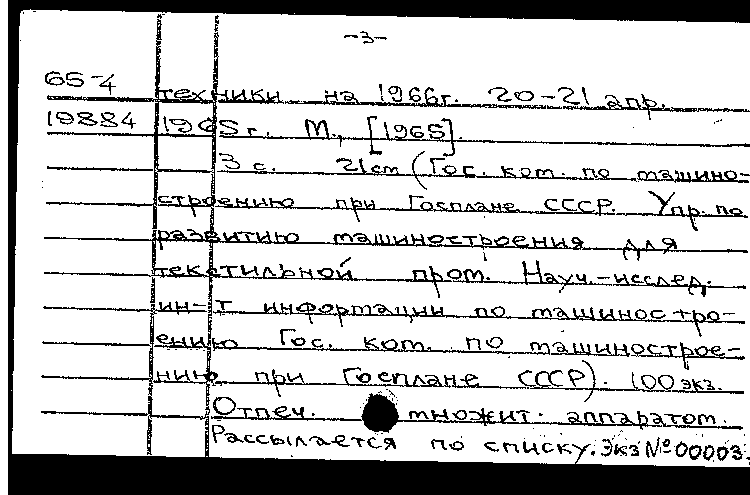 -3-
65-4 техники на 1966г. 20-21 апр.
19884 1965г. М., [1965].
3 с. 21см (Гос. ком. по машино-
строению при Госплане СССР. Упр. по
развитию машиностроения для
текстильной пром. Науч.-исслед.
ин-т информации по машиностро-
ению Гос. ком. по машинострое-
нию при Госплане СССР). 100 экз.
Отпеч. множит. аппаратом.
Рассылается по списку. Экз № 00003.